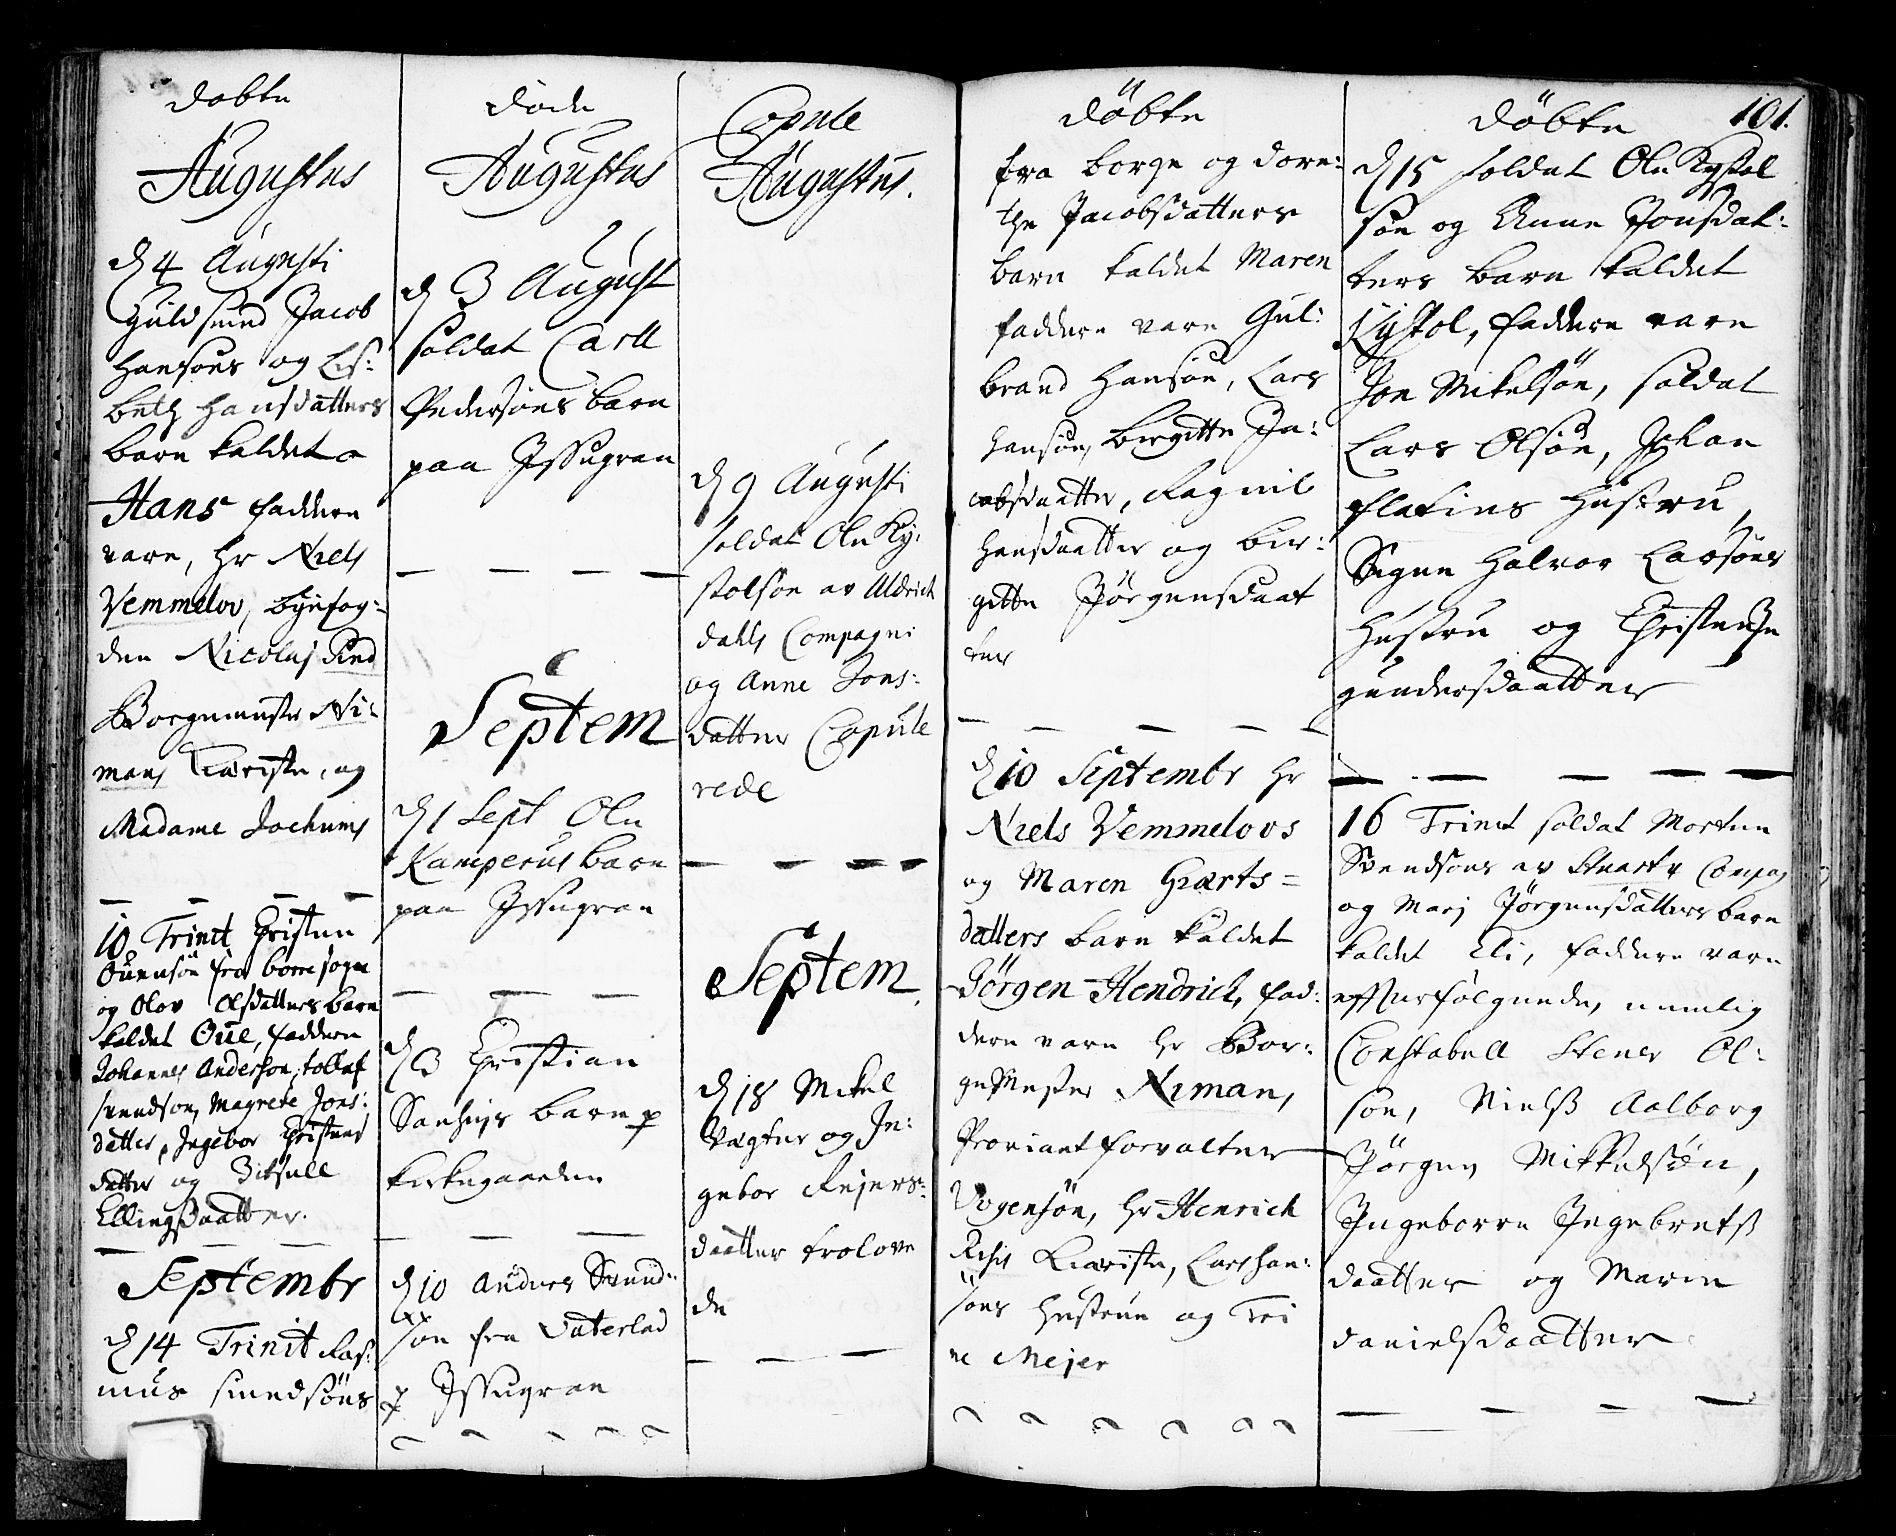 døbte
Augustus
d 4 Augusti
Guldsmed Jacob
Hansøns og Lis:
beth Hansdatters
barn kaldet
Hans faddere
vare, hr Niels
Vemmelov, byefog:
den Nicolaj
Borgemester Ni:
mans Kiæriste, og
Madame Jochums
10 Trinit Christen
Ouensøn fra borresogn
og Olov Olsdatters barn
kaldet Oue, faddere
Johannes Anderson, tollef
svendson, Magrete Jons:
datter, Ingebor Christens
datter og
Ellingsdaatter.
Septembr
d 14 Trinit Ras:
mus smedsøns
døde
Augustus
d 3 August
soldat Carll
Pedersøns barn
paa Issugran
Septem
d 1 Sept Ole
Kamperuls barn
paa Issugran
d 3 Christian
barn p
kirkegaarden
d 10 Anders Svend:
søn fra Vaterlad
p Issugran
Copule
Augustus.
d 9 Augusti
soldat Ole Ky:
stolsøn av Aldrich
dahls Compagni
og Anne Jons:
datter Copule
rede
Septem
d 18 Mikel
Vægter og In:
gebor Rejers:
daatter trolove
de
døbte
fra borge og dore:
the Jacobsdatters
barn kaldet Maren
faddere vare Gul:
brand Hansøn, Lars
Hansøn, birgitte Ja:
cobsdaatter, Ragnil
Hansdaatter og bir:
gitte Jørgensdaat
ter
d 10 Septembr hr
Niels Vemmelovs
og Maren Giærts=
datters barn kaldet
Jørgen Hendrich, fad:
dere vare hr Bor:
geMester Niman,
Proviantforvalter
Vogensøn, hr Henrich
Kiæriste, Lars Han:
søns Hustrue og Tri
ne Mejer
døbte 101.
d 15 soldat Ole Kystol
søn og Anne Jonsdat:
ters barn kaldet
Kystol, faddere vare
Jon Mikelsøn, soldat
Lars Olsøn, Johan
Hustru,
Signe Halvor Larsøns
Hustru og Christense
gundersdaatter
16 Trinit soldat Morten
Svendsøns av Compag
og Marj Jørgensdatters barn
kaldet Eli, faddere vare
efterfølgende, nemlig
Constabell Stener Ol:
søn, Nielß Aalborg
Jørgen Mikkelsøn,
Ingeborre Ingebretß
daatter og Maren
danielsdaatter